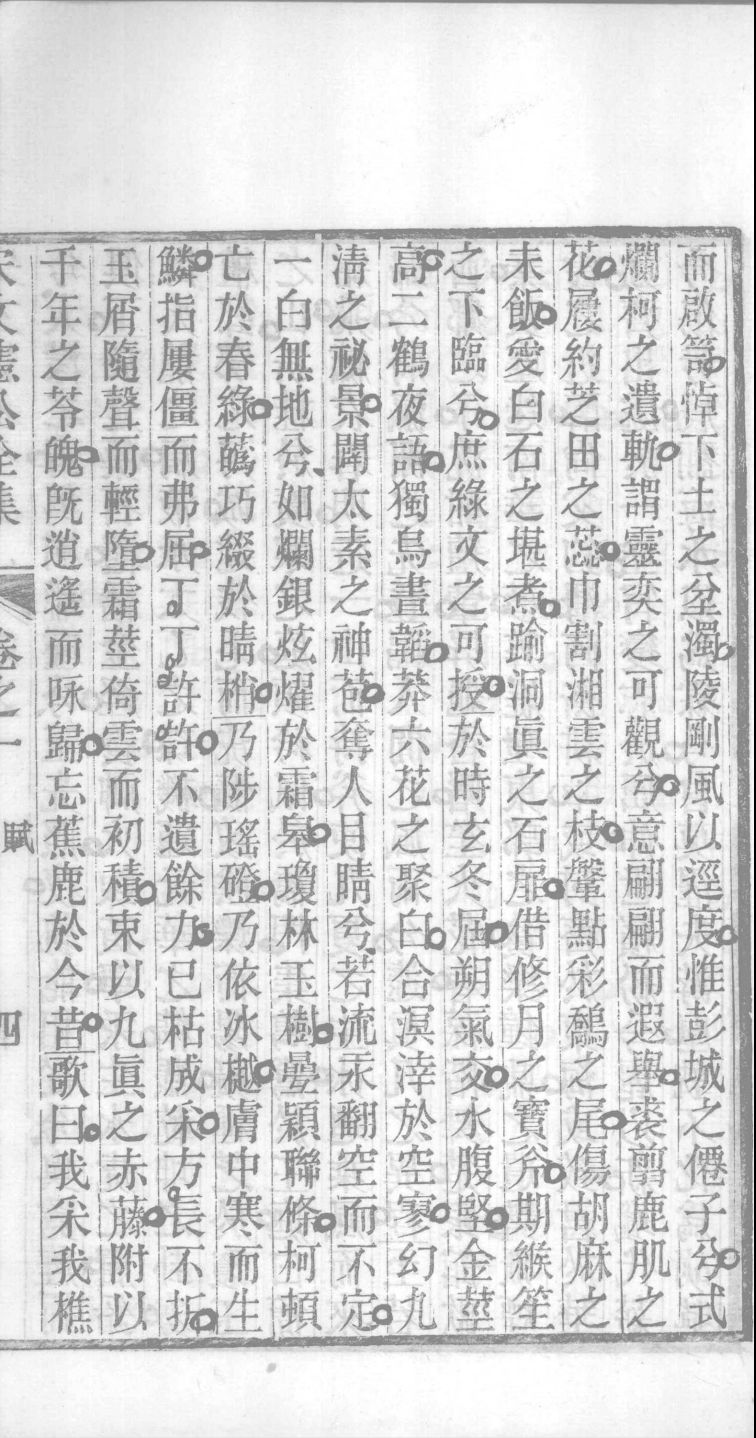 而啟笴悼下土之坌濁陵剛風以逕度惟彭城之僊子兮式
爛柯之遺軌謂靈奕之可觀兮意翩翩而遐舉裘翦鹿肌之
花屨約芝田之蕊巾割湘雲之枝鞶點彩鷸之尾傷胡麻之
未飯愛白石之堪煮踰洞眞之石扉借修月之寶斧期緱笙
之下臨兮庶綠文之可授於時玄冬屆朔氣交水腹堅金莖
高二鶴夜語獨鳥晝韜莽六花之聚白合溟涬於空寥幻九
淸之祕景闢太素之神苞奪人目睛兮若流汞翻空而不定
一白無地兮如爛銀炫燿於霜皋瓊林玉樹曡穎聯條柯頓
亡於春綠蘤巧綴於晴梢乃陟瑤磴乃依冰樾膚中寒而生
鱗指屢僵而弗屈丁丁許許不遺餘力已枯成采方長不折
玉屑隨聲而輕墮霜莖倚雲而初積束以九眞之赤藤附以
千年之苓魄旣逍遙而咏歸忘蕉鹿於今昔歌曰我采我樵
宋文憲公全集 卷之一 賦 四